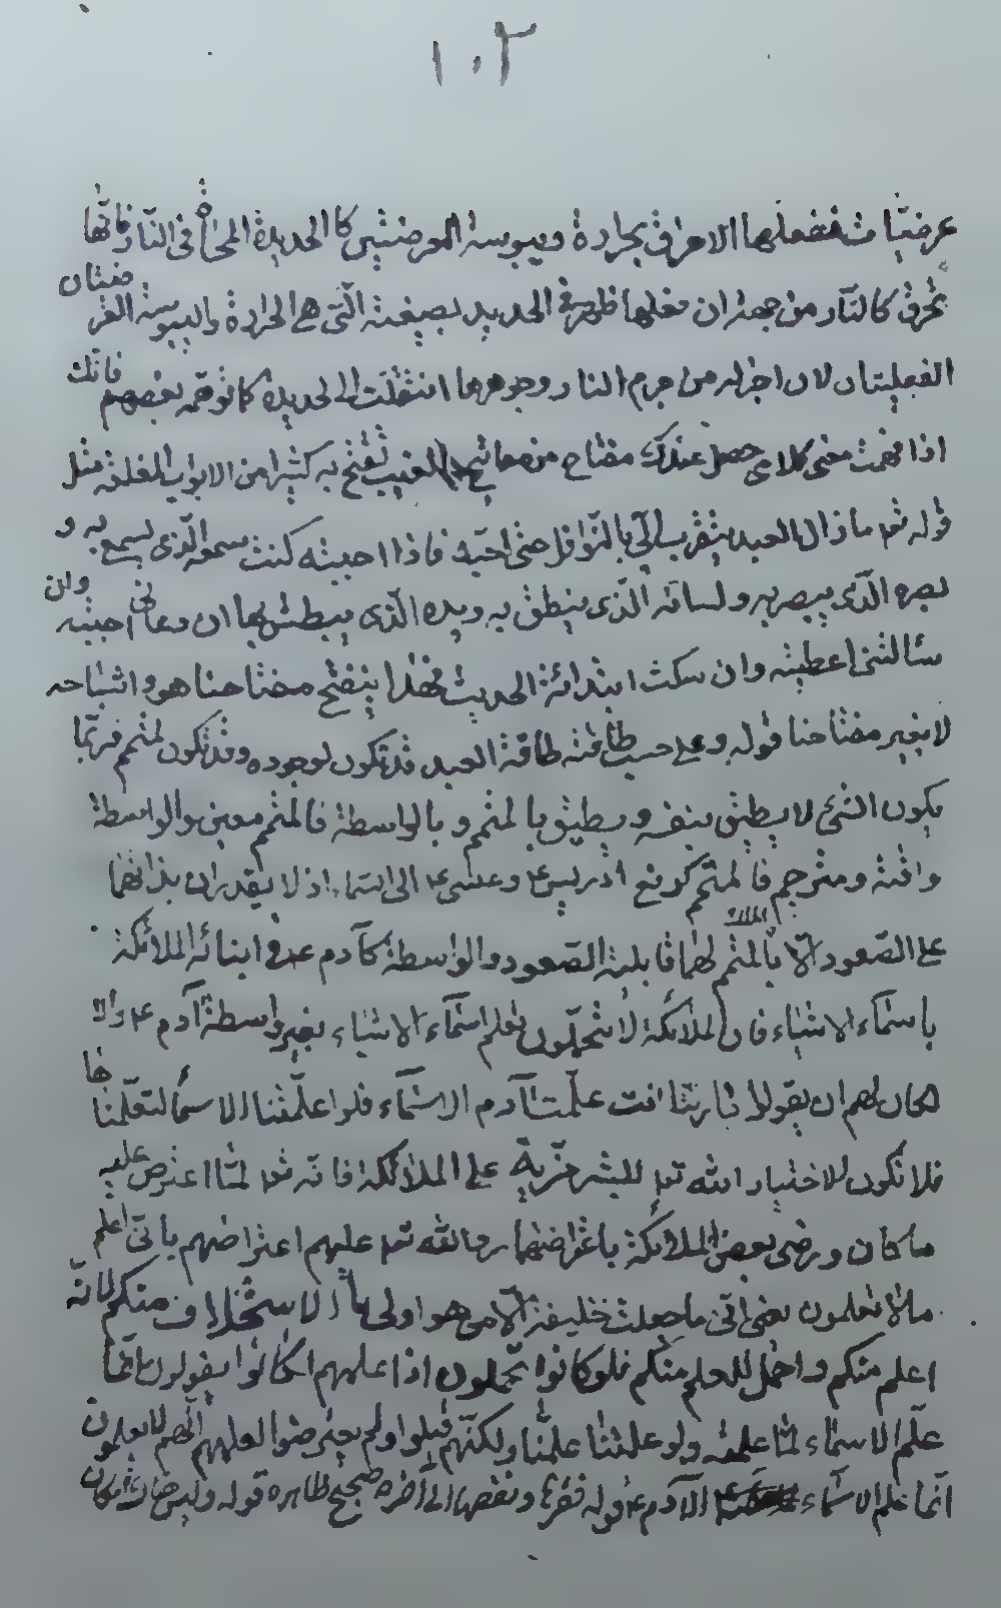 ١٠٢
عرضيّات ففعلها الاحراق بحرارة ويبوسة العرضيتين كالحديدة المحماة في النار فانّها
تحرق كالنار من جهة ان فعلها ظهر في الحديد بصبغته الّتي هي الحرارة واليبوسة العرضيتان
الفعليتان لا ان اجزاء من جرم النار وجوهرها انتقلت الى الحديدة كما توهّمه بعضهم فانّك
اذا فهمت معنى كلامي حصل عندك مفتاح من مفاتيح الغيب تفتح به كثيرا من الابواب المغلقة مثل
قوله تعـ ما زال العبد يتقرب اليّ بالنّوافل حتى احبّه فاذا احببته كنت سمعه الّذي يسمع به و
بصره الّذي يبصر به ولسانه الّذي ينطق به ويده الّذي يبطش بها ان دعاني احببته وان
سئالني اعطيته وان سكت ابتدائته الحديث فهذا ينفتح بمفتاحنا هو واشباهه
لا بغير مفتاحنا قوله وعلى حسب طاقته طاقة العبد قد تكون لوجوده وقد تكون لمتمم فربّما
يكون الشئ لا يطيق بنفسه ويطيق بالمتمم وبالواسطة فالمتمم معين والواسطة
واقية ومترجم فالمتمم كرفع ادريس ع وعيسى ع الى السماء اذ لا يقدران بذاتهما
على الصّعود الّا بالمتمم لهما قابلية الصّعود والواسطة كآدم ع في انبائه الملائكة
باسمآء الاشياء فان الملائكة لا تتحمّلون تعلم اسمآء الاشياء بغير واسطة آدم ع والا
لكان لهم ان يقولوا يا ربّنا انت علّمت آدم الاسمآء فلو علّمتنا الاسمآء لتعلّمناها
فلا تكون لاختيار الله تعـ للبشر مزية على الملائكة فانّه تعـ لمّا اعترض عليه
ما كان ورضي بعض الملائكة باعتراضها رد الله تعـ عليهم اعتراضهم بانّي اعلم
ما لا تعلمون يعني انّي ما جعلت خليفة الّا من هو اولى بالاستخلاف منكم لانّه
اعلم منكم واحمل للعلم منكم فلو كانوا تحملون اذا علمهم لكانوا يقولون انّما
علّم الاسماء لمّا علمته ولو علمتنا علمنا ولكنّهم قبلوا ولم يعترضوا لعلمهم انّهم لا يعلمون
انّما علم الاسمآء الّا آدم ع قوله فقرّها ونقصها الى آخره صحيح ظاهره قوله وليس